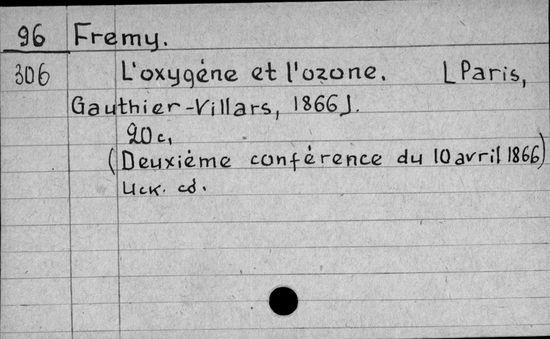 96 Fremy.
306 L'oxygéne et l'ozone. [Paris,
Gauthier-Villars, 1866].
20 c.
(Deuxième conférence du 10 avril 1866)
Иск. cд.